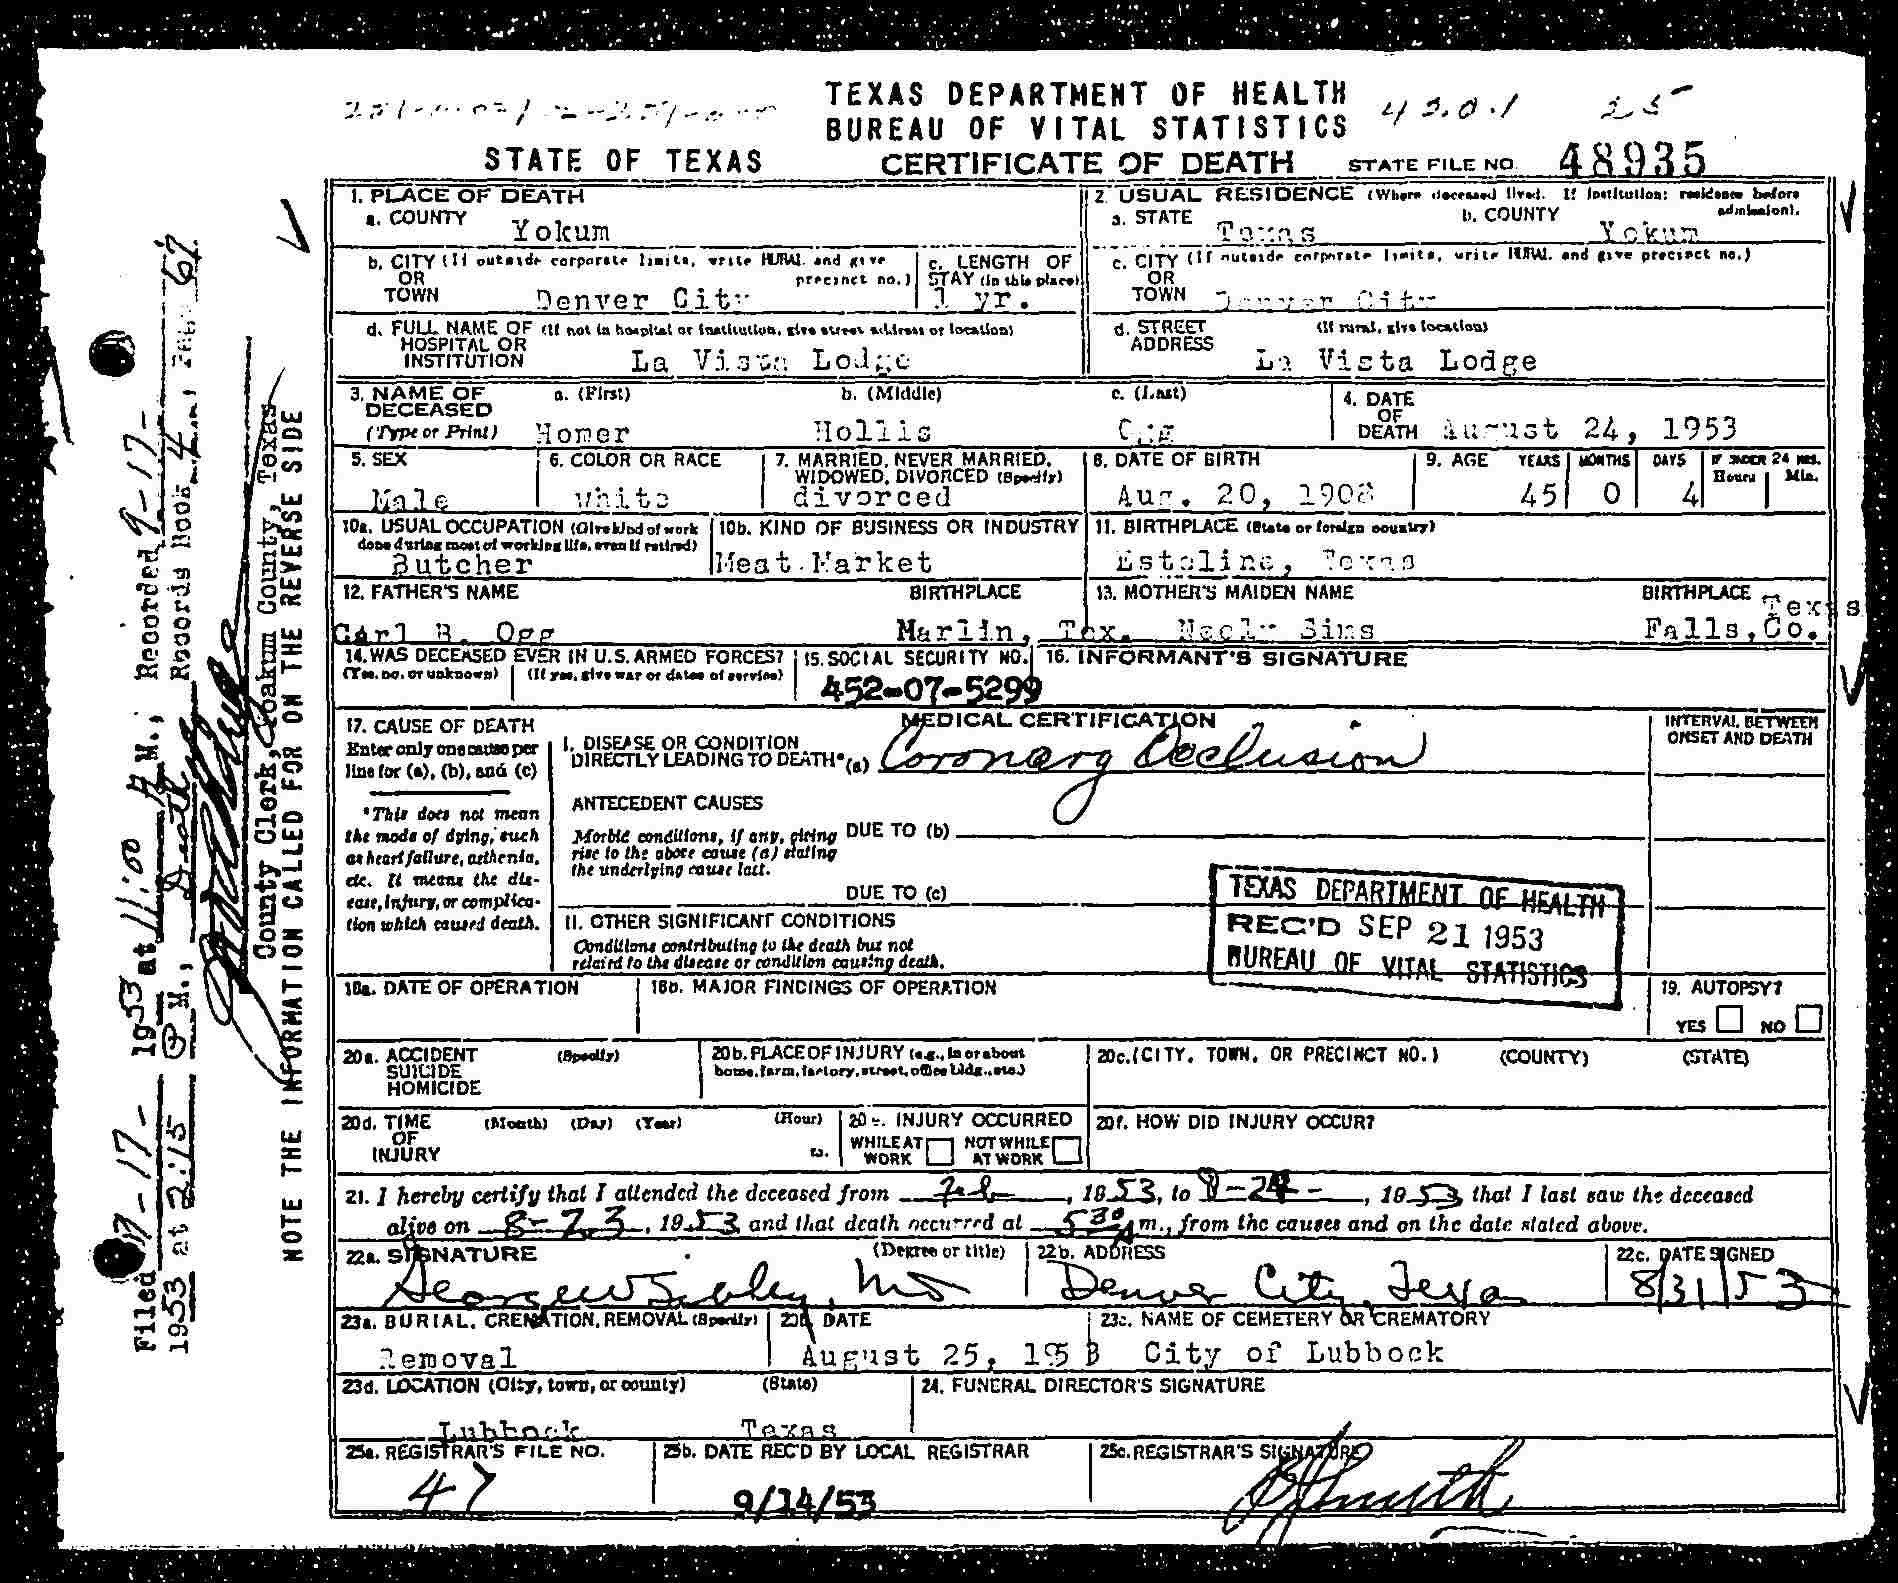 TEXAS DEPARTMENT OF HEALTH
BUREAU OF VITAL STATISTICS
420.1 25
STATE OF TEXAS CERTIFICATE OF DEATH STATE FILE NO. 48935
1. PLACE OF DEATH
a. COUNTY Yokum
2. USUAL RESIDENCE (Where deceased lived. If institution: residence before admission).
a. STATE Texas b. COUNTY Yokum
b. CITY (If outside corporate limits, write RURAL and give precinct no.)
OR
TOWN Denver City
c. LENGTH OF STAY (in this place) 1 yr.
c. CITY (If outside corporate limits, write RURAL and give precinct no.)
OR
TOWN Denver City
d. FULL NAME OF (If not in hospital or institution, give street address or location)
HOSPITAL OR
INSTITUTION La Vista Lodge
d. STREET (If rural, give location)
ADDRESS La Vista Lodge
3. NAME OF DECEASED (Type or Print)
a. (First) b. (Middle) c. (Last)
Homer Hollis Ogg
4. DATE OF DEATH August 24, 1953
5. SEX Male
6. COLOR OR RACE white
7. MARRIED, NEVER MARRIED, WIDOWED, DIVORCED (Specify) divorced
8. DATE OF BIRTH Aug. 20, 1908
9. AGE YEARS MONTHS DAYS IF UNDER 24 HRS. Hours Min.
45 0 4
10a. USUAL OCCUPATION (Give kind of work done during most of working life, even if retired)
Butcher
10b. KIND OF BUSINESS OR INDUSTRY
Meat Market
11. BIRTHPLACE (State or foreign country)
Esteline, Texas
12. FATHER'S NAME BIRTHPLACE
Carl B. Ogg Marlin, Tex.
13. MOTHER'S MAIDEN NAME BIRTHPLACE Texas
Sims Falls, Co.
14. WAS DECEASED EVER IN U.S. ARMED FORCES?
(Yes, no, or unknown) (If yes, give war or dates of service)
15. SOCIAL SECURITY NO.
452-07-5299
16. INFORMANT'S SIGNATURE
MEDICAL CERTIFICATION
17. CAUSE OF DEATH
Enter only one cause per line for (a), (b), and (c)
*This does not mean the mode of dying, such as heart failure, asthenia, etc. It means the disease, injury, or complication which caused death.
I. DISEASE OR CONDITION
DIRECTLY LEADING TO DEATH* (a) Coronary Occlusion
INTERVAL BETWEEN ONSET AND DEATH
ANTECEDENT CAUSES
Morbid conditions, if any, giving rise to the above cause (a) stating the underlying cause last.
DUE TO (b)
DUE TO (c)
II. OTHER SIGNIFICANT CONDITIONS
Conditions contributing to the death but not related to the disease or condition causing death.
TEXAS DEPARTMENT OF HEALTH
REC'D SEP 21 1953
BUREAU OF VITAL STATISTICS
18a. DATE OF OPERATION
18b. MAJOR FINDINGS OF OPERATION
19. AUTOPSY?
YES NO
20a. ACCIDENT (Specify)
SUICIDE
HOMICIDE
20b. PLACE OF INJURY (e.g., in or about home, farm, factory, street, office bldg., etc.)
20c. (CITY, TOWN, OR PRECINCT NO.) (COUNTY) (STATE)
20d. TIME (Month) (Day) (Year) (Hour)
OF
INJURY m.
20e. INJURY OCCURRED
WHILE AT WORK NOT WHILE AT WORK
20f. HOW DID INJURY OCCUR?
21. I hereby certify that I attended the deceased from Feb, 1953, to 8-24-, 1953 that I last saw the deceased
alive on 8-23, 1953 and that death occurred at 5 30 A m., from the causes and on the date stated above.
22a. SIGNATURE (Degree or title)
George W Sibley, MD
22b. ADDRESS
Denver City, Texas
22c. DATE SIGNED
8/31/53
23a. BURIAL, CREMATION, REMOVAL (Specify)
Removal
23b. DATE
August 25, 1953
23c. NAME OF CEMETERY OR CREMATORY
City of Lubbock
23d. LOCATION (City, town, or county) (State)
Lubbock Texas
24. FUNERAL DIRECTOR'S SIGNATURE
25a. REGISTRAR'S FILE NO.
47
25b. DATE REC'D BY LOCAL REGISTRAR
9/14/53
25c. REGISTRAR'S SIGNATURE
Filed 9-17- 1953 at 11:00 A M., Recorded 9-17-
1953 at 2:15 P M., Death Records Book 4, Page 67
County Clerk, Yoakum County, Texas
NOTE THE INFORMATION CALLED FOR ON THE REVERSE SIDE